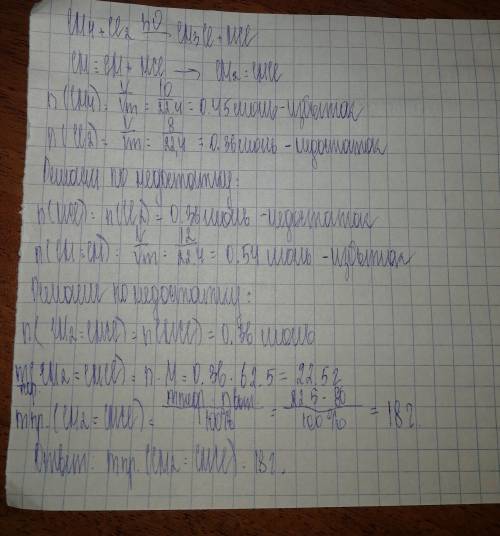 CH4 + Cl2 hν→ CH3Cl + HCl
CH≡CH + HCl → CH2 = CHCl
n(CH4) = V/Vm = 10/22,4 = 0.45 моль - избыток
n(Cl2) = V/Vm = 8/22,4 = 0.36 моль - недостаток
Решаем по недостатку:
n(HCl) = n(Cl2) = 0.36 моль - недостаток
n(CH≡CH) = V/Vm = 12/22,4 = 0.54 моль - избыток
Решаем по недостатку:
n(CH2=CHCl) = n(HCl) = 0.36 моль
mтеор.(CH2=CHCl) = n · M = 0.36 · 62.5 = 22.5г
mпр.(CH2=CHCl) = mтеор · ηвых/100% = 22.5 · 80/100% = 18г.
Ответ: mпр.(CH2=CHCl) = 18г.